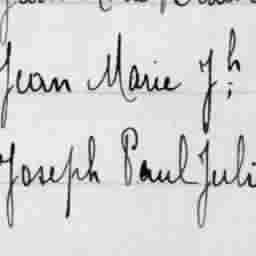 Jean Marie Jh:
Joseph Paul Juli